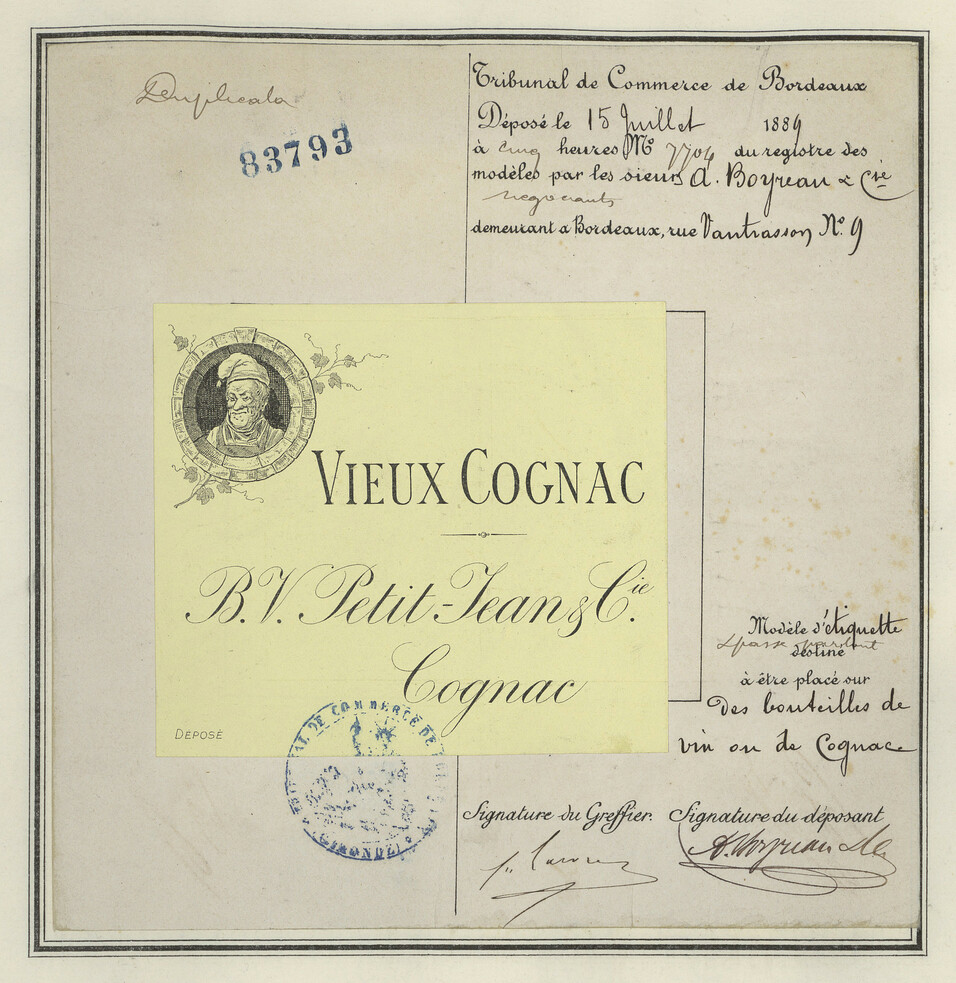 Duplicata
83793
Tribunal de Commerce de Bordeaux
Déposé le 15 Juillet 1889
à cinq heures No 7704 du registre des
modèles par les sieurs A. Boyreau & Cie
négociants
demeurant a Bordeaux, rue Vantrasson No. 9
VIEUX COGNAC
B.V. Petit-Jean & Cie.
Cognac
DÉPOSÉ
Modèle d'étiquette
destiné
à être placé sur
des bouteilles de
vin ou de Cognac
TRIBUNAL DE COMMERCE DE
(GIRONDE)
Signature du Greffier. Signature du déposant
A. Boyreau